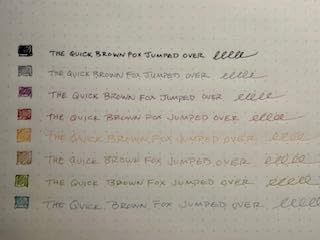 THE QUICK BROWN FOX JUMPED OVER
THE QUICK BROWN FOX JUMPED OVER
THE QUICK BROWN FOX JUMPED OVER
THE QUICK BROWN FOX JUMPED OVER
THE QUICK BROWN FOX JUMPED OVER
THE QUICK BROWN FOX JUMPED OVER
THE QUICK BROWN FOX JUMPED OVER
THE QUICK BROWN FOX JUMPED OVER